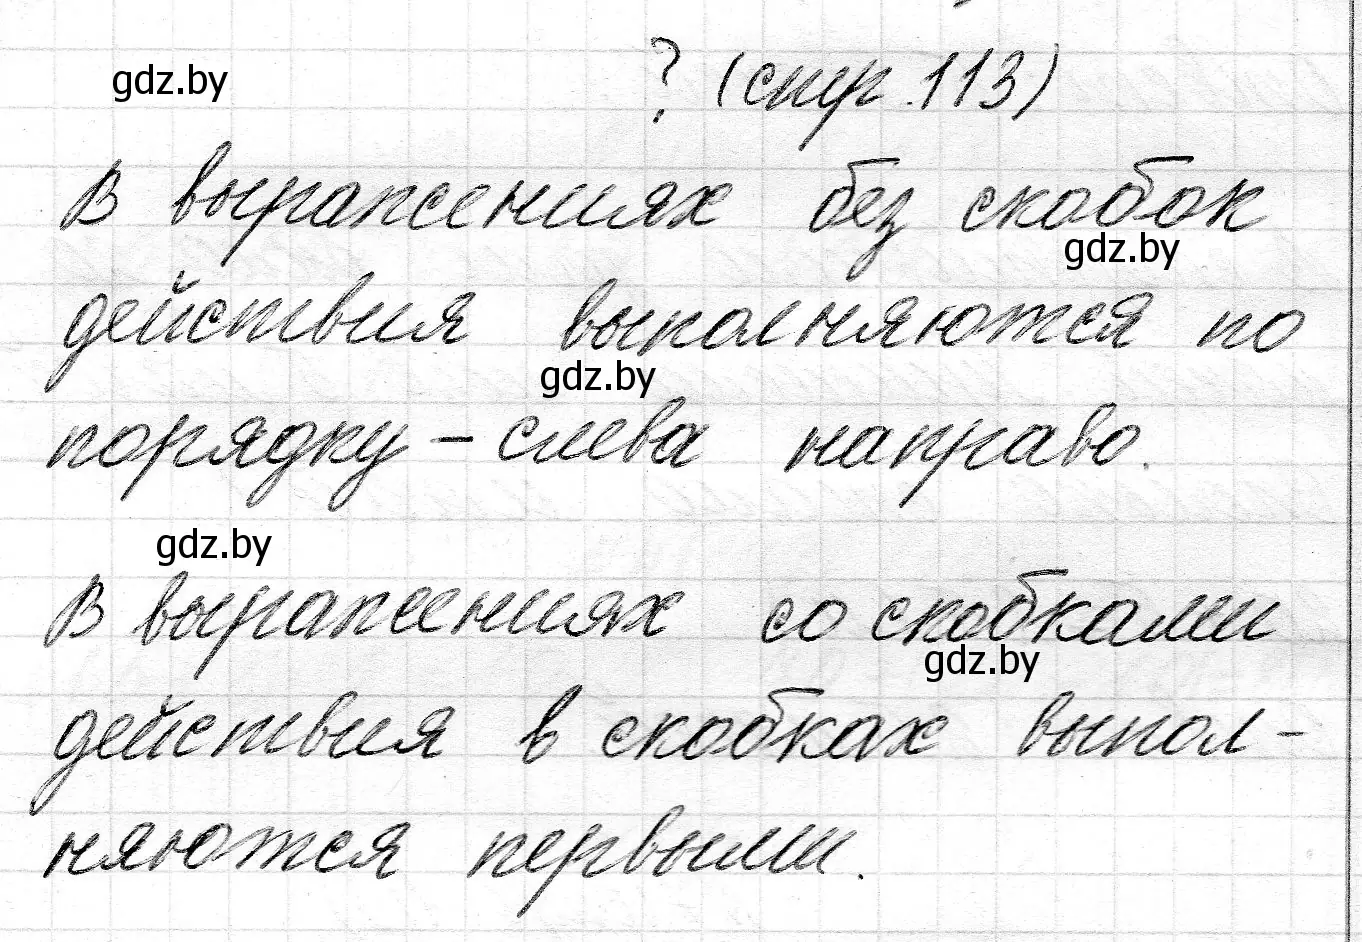 gdz.by
? (стр. 113)
В выражениях без скобок
gdz.by
действия выполняются по
gdz.by
порядку – слева направо.
gdz.by
В выражениях со скобками
gdz.by
действия в скобках выпол-
няются первыми.